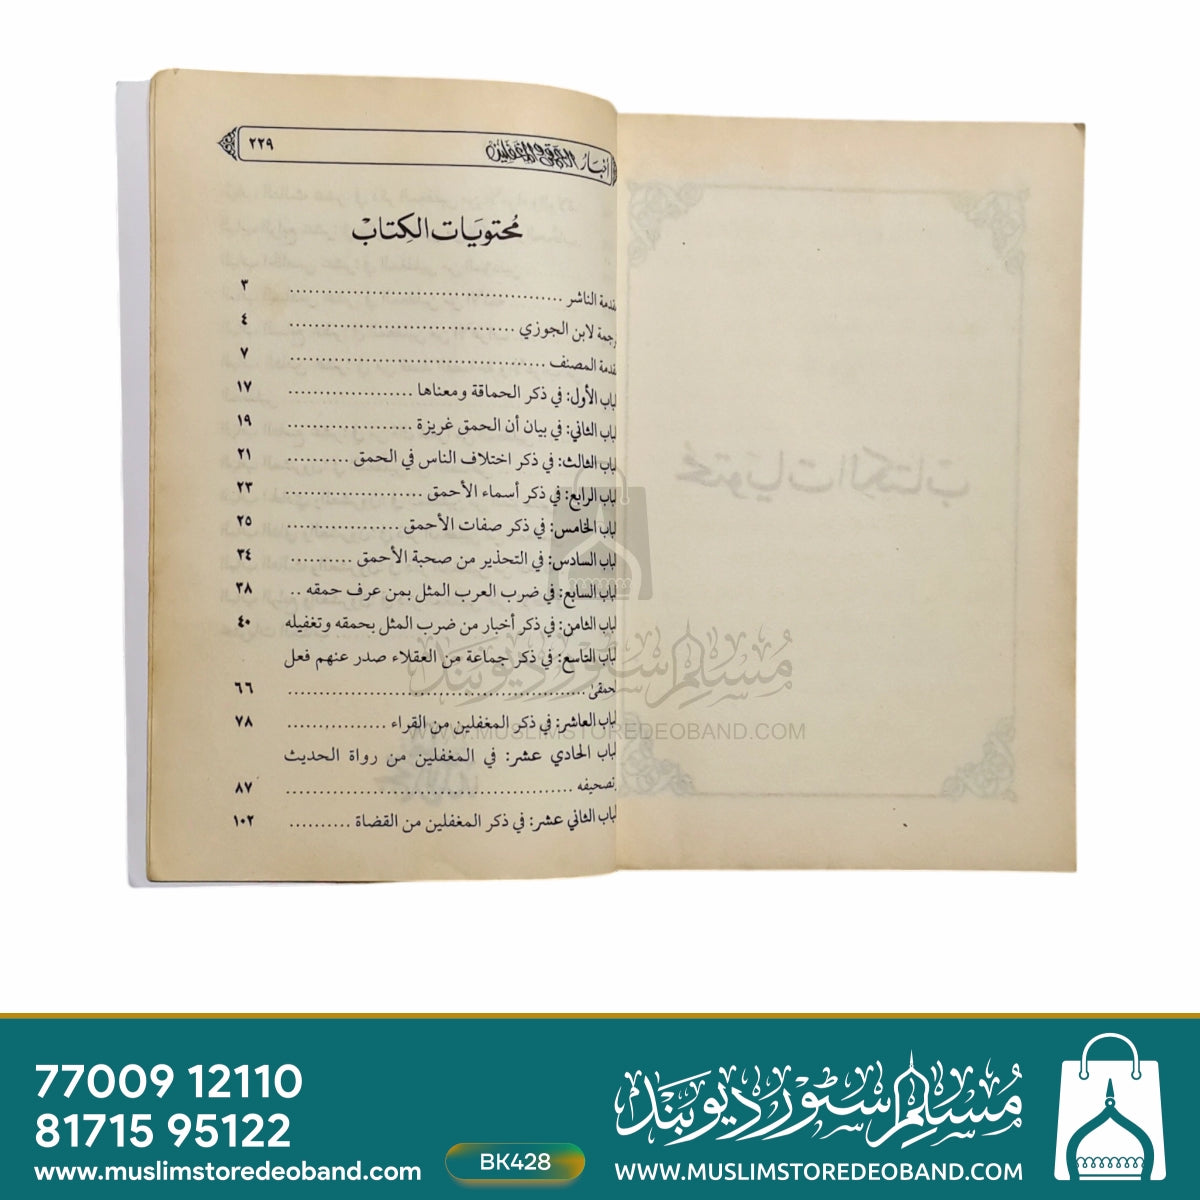 أخبار الحمقى والمغفلين ٢٢٩
محتويات الكِتابْ
قدمة الناشر ........ ٣
رجمة لابن الجوزي ........ ٤
قدمة المصنف ........ ٧
لباب الأول: في ذكر الحماقة ومعناها ........ ١٧
لباب الثاني: في بيان أن الحمق غريزة ........ ١٩
لباب الثالث: في ذكر اختلاف الناس في الحمق ........ ٢١
لباب الرابع: في ذكر أسماء الأحمق ........ ٢٣
لباب الخامس: في ذكر صفات الأحمق ........ ٢٥
لباب السادس: في التحذير من صحبة الأحمق ........ ٣٤
لباب السابع: في ضرب العرب المثل بمن عرف حمقه .. ٣٨
لباب الثامن: في ذكر أخبار من ضرب المثل بحمقه وتغفيله ٤٠
لباب التاسع: في ذكر جماعة من العقلاء صدر عنهم فعل
لحمقىٰ ........ ٦٦
لباب العاشر: في ذكر المغفلين من القراء ........ ٧٨
لباب الحادي عشر: في المغفلين من رواة الحديث
تصحيفه ........ ٨٧
لباب الثاني عشر: في ذكر المغفلين من القضاة ........ ١٠٢
محتويات الكِتابْ
مسلم سٹور دیوبند
WWW.MUSLIMSTOREDEOBAND.COM
77009 12110
81715 95122
www.muslimstoredeoband.com
BK428
مسلم سٹور دیوبند
WWW.MUSLIMSTOREDEOBAND.COM